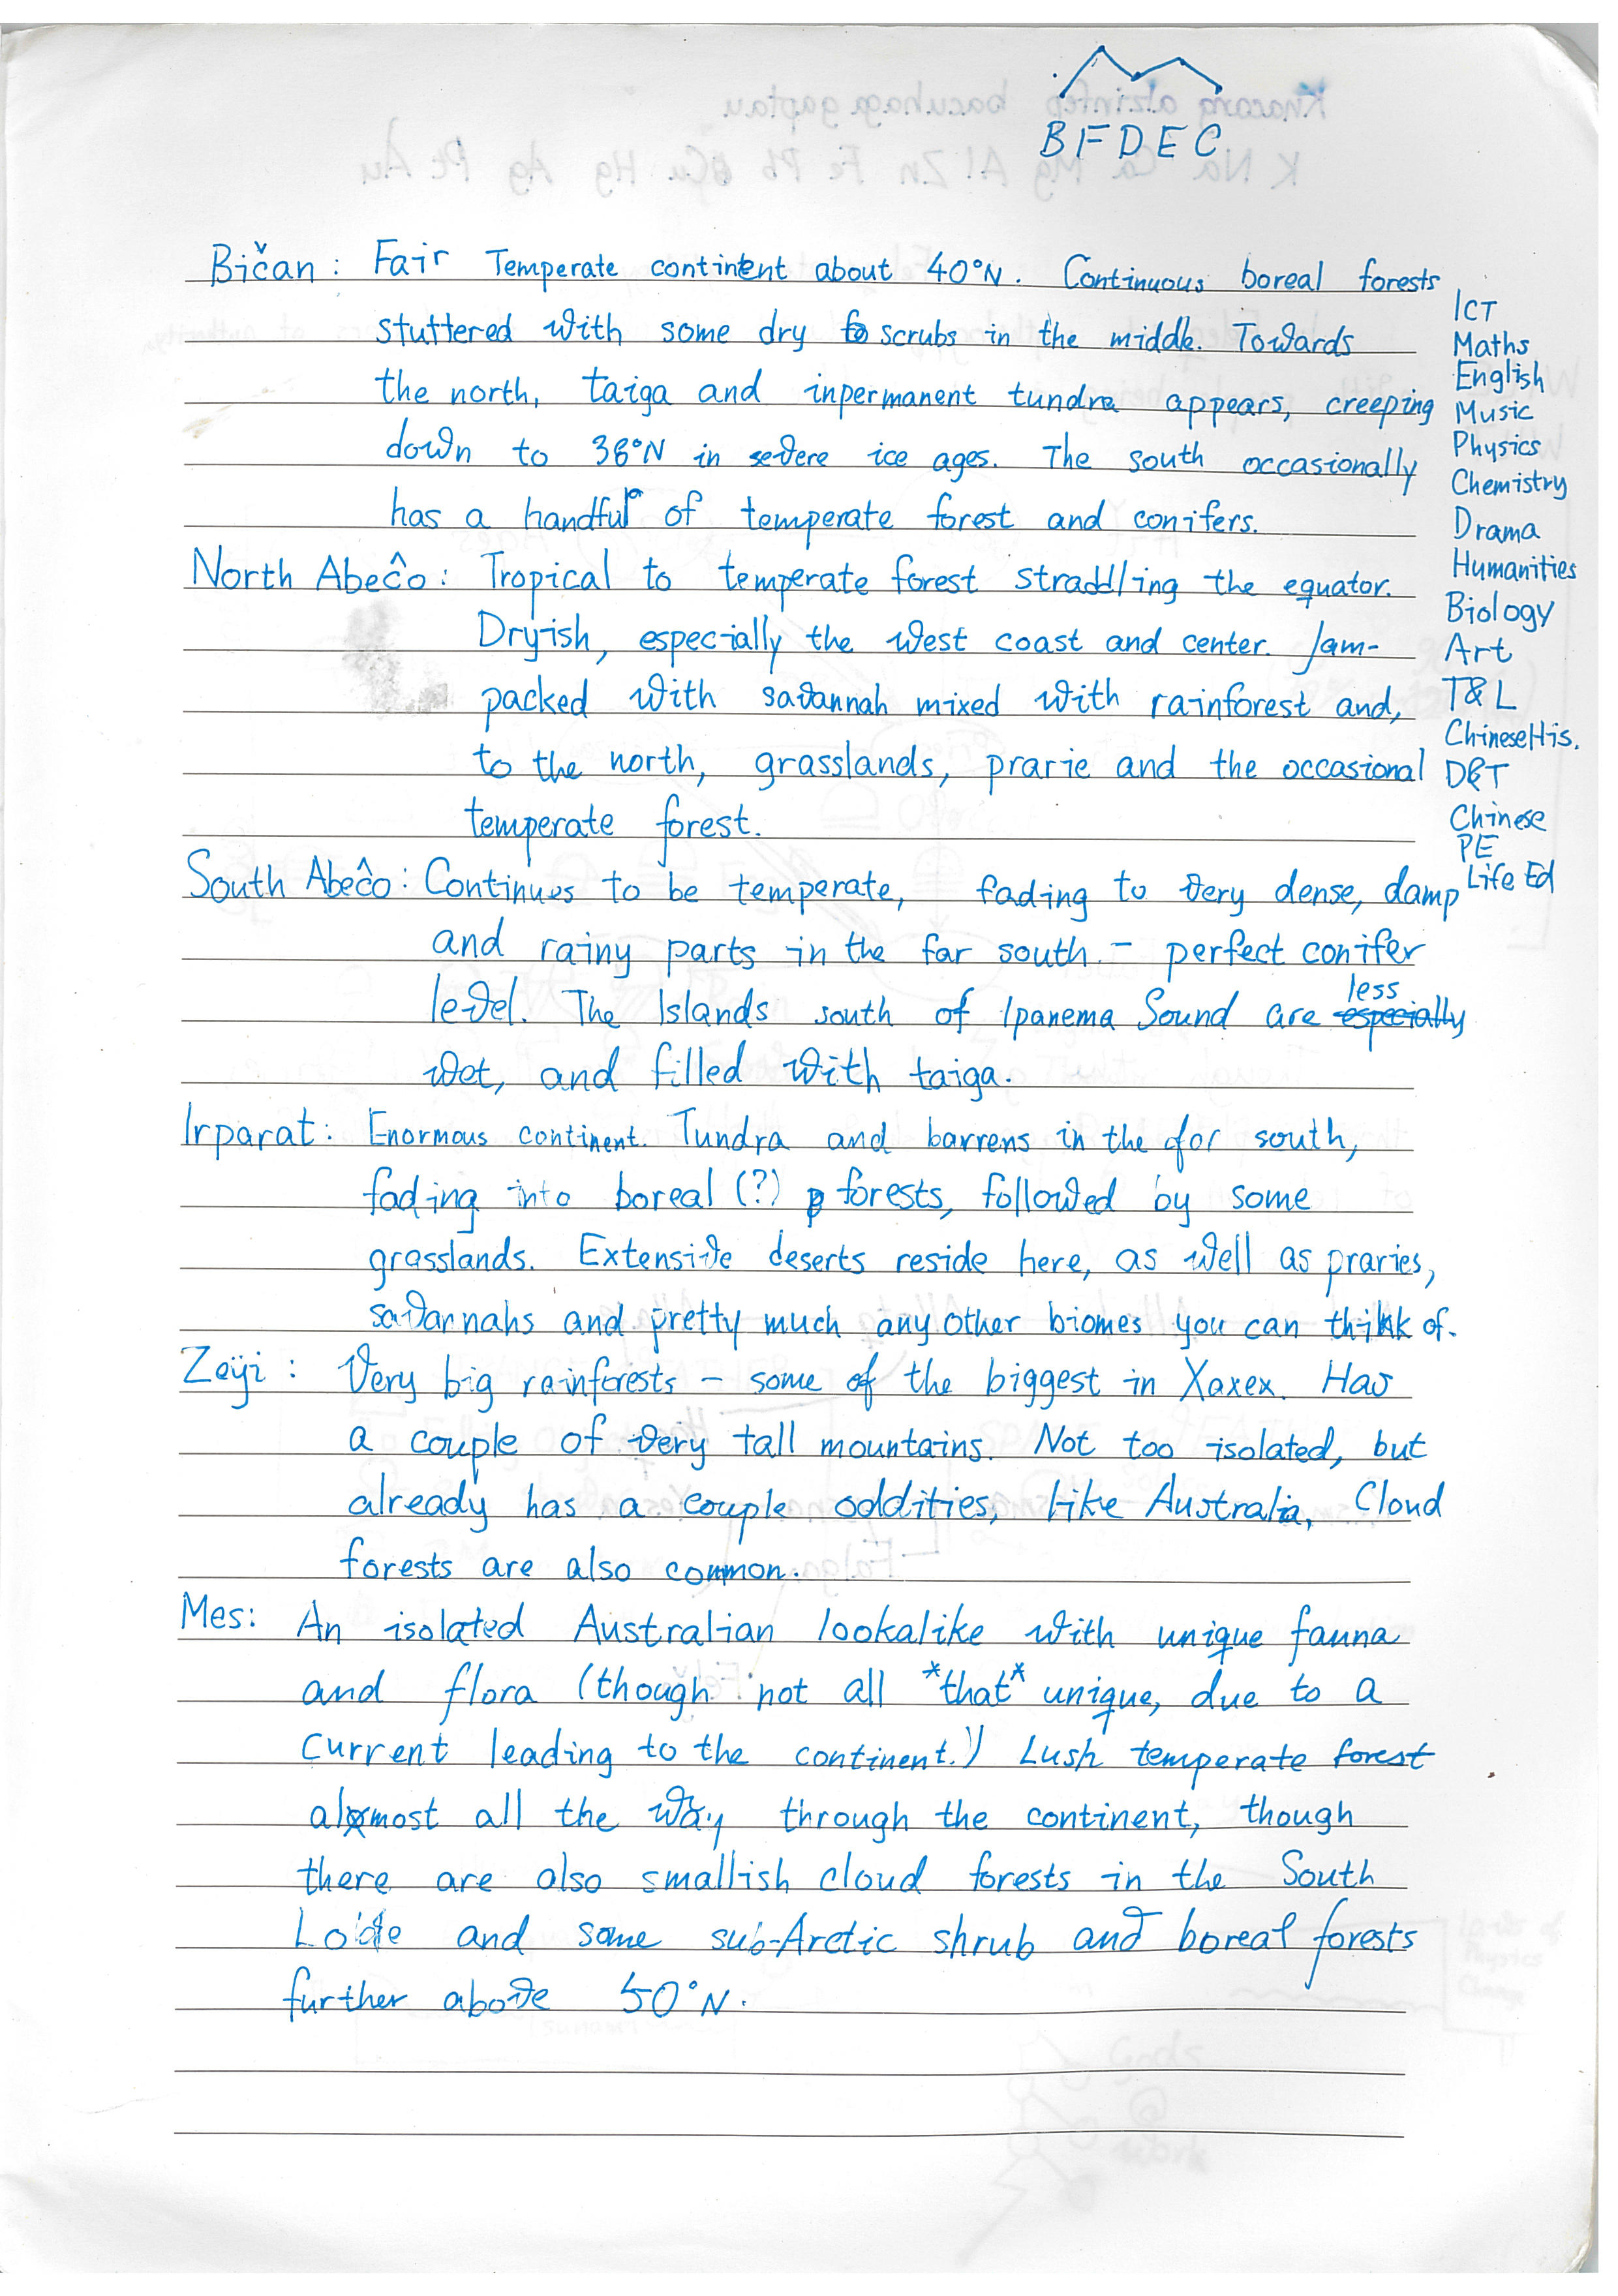 BFDEC
Bičan: Fair Temperate continent about 40°N. Continuous boreal forests
stuttered with some dry scrubs in the middle. Towards
the north, taiga and inpermanent tundra appears, creeping
down to 38°N in severe ice ages. The south occasionally
has a handful of temperate forest and conifers.
North Abeĉo: Tropical to temperate forest straddling the equator.
Dryish, especially the west coast and center. Jam-
packed with savannah mixed with rainforest and,
to the north, grasslands, prarie and the occasional
temperate forest.
South Abeĉo: Continues to be temperate, fading to very dense, damp
and rainy parts in the far south. - perfect conifer
level. The Islands south of Ipanema Sound are less especially
wet, and filled with taiga.
Irparat: Enormous continent. Tundra and barrens in the far south,
fading into boreal (?) forests, followed by some
grasslands. Extensive deserts reside here, as well as praries,
savannahs and pretty much any other biomes you can think of.
Zeÿi: Very big rainforests - some of the biggest in Xaxex. Has
a couple of very tall mountains. Not too isolated, but
already has a couple oddities, like Australia, Cloud
forests are also common.
Mes: An isolated Australian lookalike with unique fauna
and flora (though not all *that* unique, due to a
current leading to the continent.) Lush temperate forest
almost all the way through the continent, though
there are also smallish cloud forests in the South
and some sub-Arctic shrub and boreal forests
further above 50°N.
ICT
Maths
English
Music
Physics
Chemistry
Drama
Humanities
Biology
Art
T&L
ChineseHis.
D&T
Chinese
PE
Life Ed